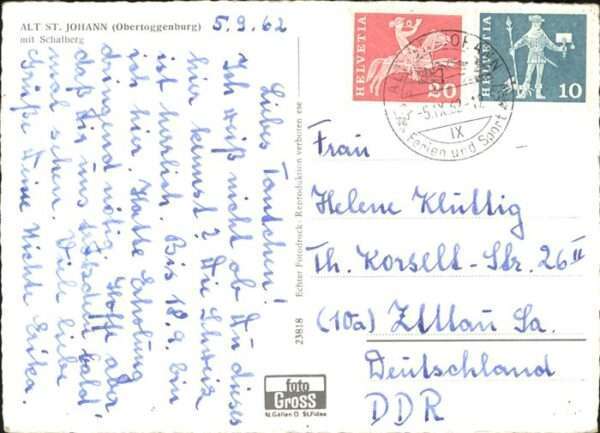 ALT ST. JOHANN (Obertoggenburg)
mit Schafberg
5.9.62
Liebes Tantchen!
Ich weiß nicht ob Du dieses
hier kennst? Die Schweiz
ist herrlich. Bis 18.9. bin
ich hier. Hatte Erholung
dringend nötig. Hoffe aber
daß wir uns bald
mal sehen. Viele liebe
Grüße Deine Nichte Erika.
23818 Echter Fotodruck · Reproduktion verboten
foto
Gross
St.Fiden
HELVETIA
20
HELVETIA
10
ST. JOHANN
-5.IX.62
IX
Ferien und Sport
Frau
Helene Kluttig
Th. Korselt-Str. 26 II
(10a) Zittau Sa.
Deutschland
DDR